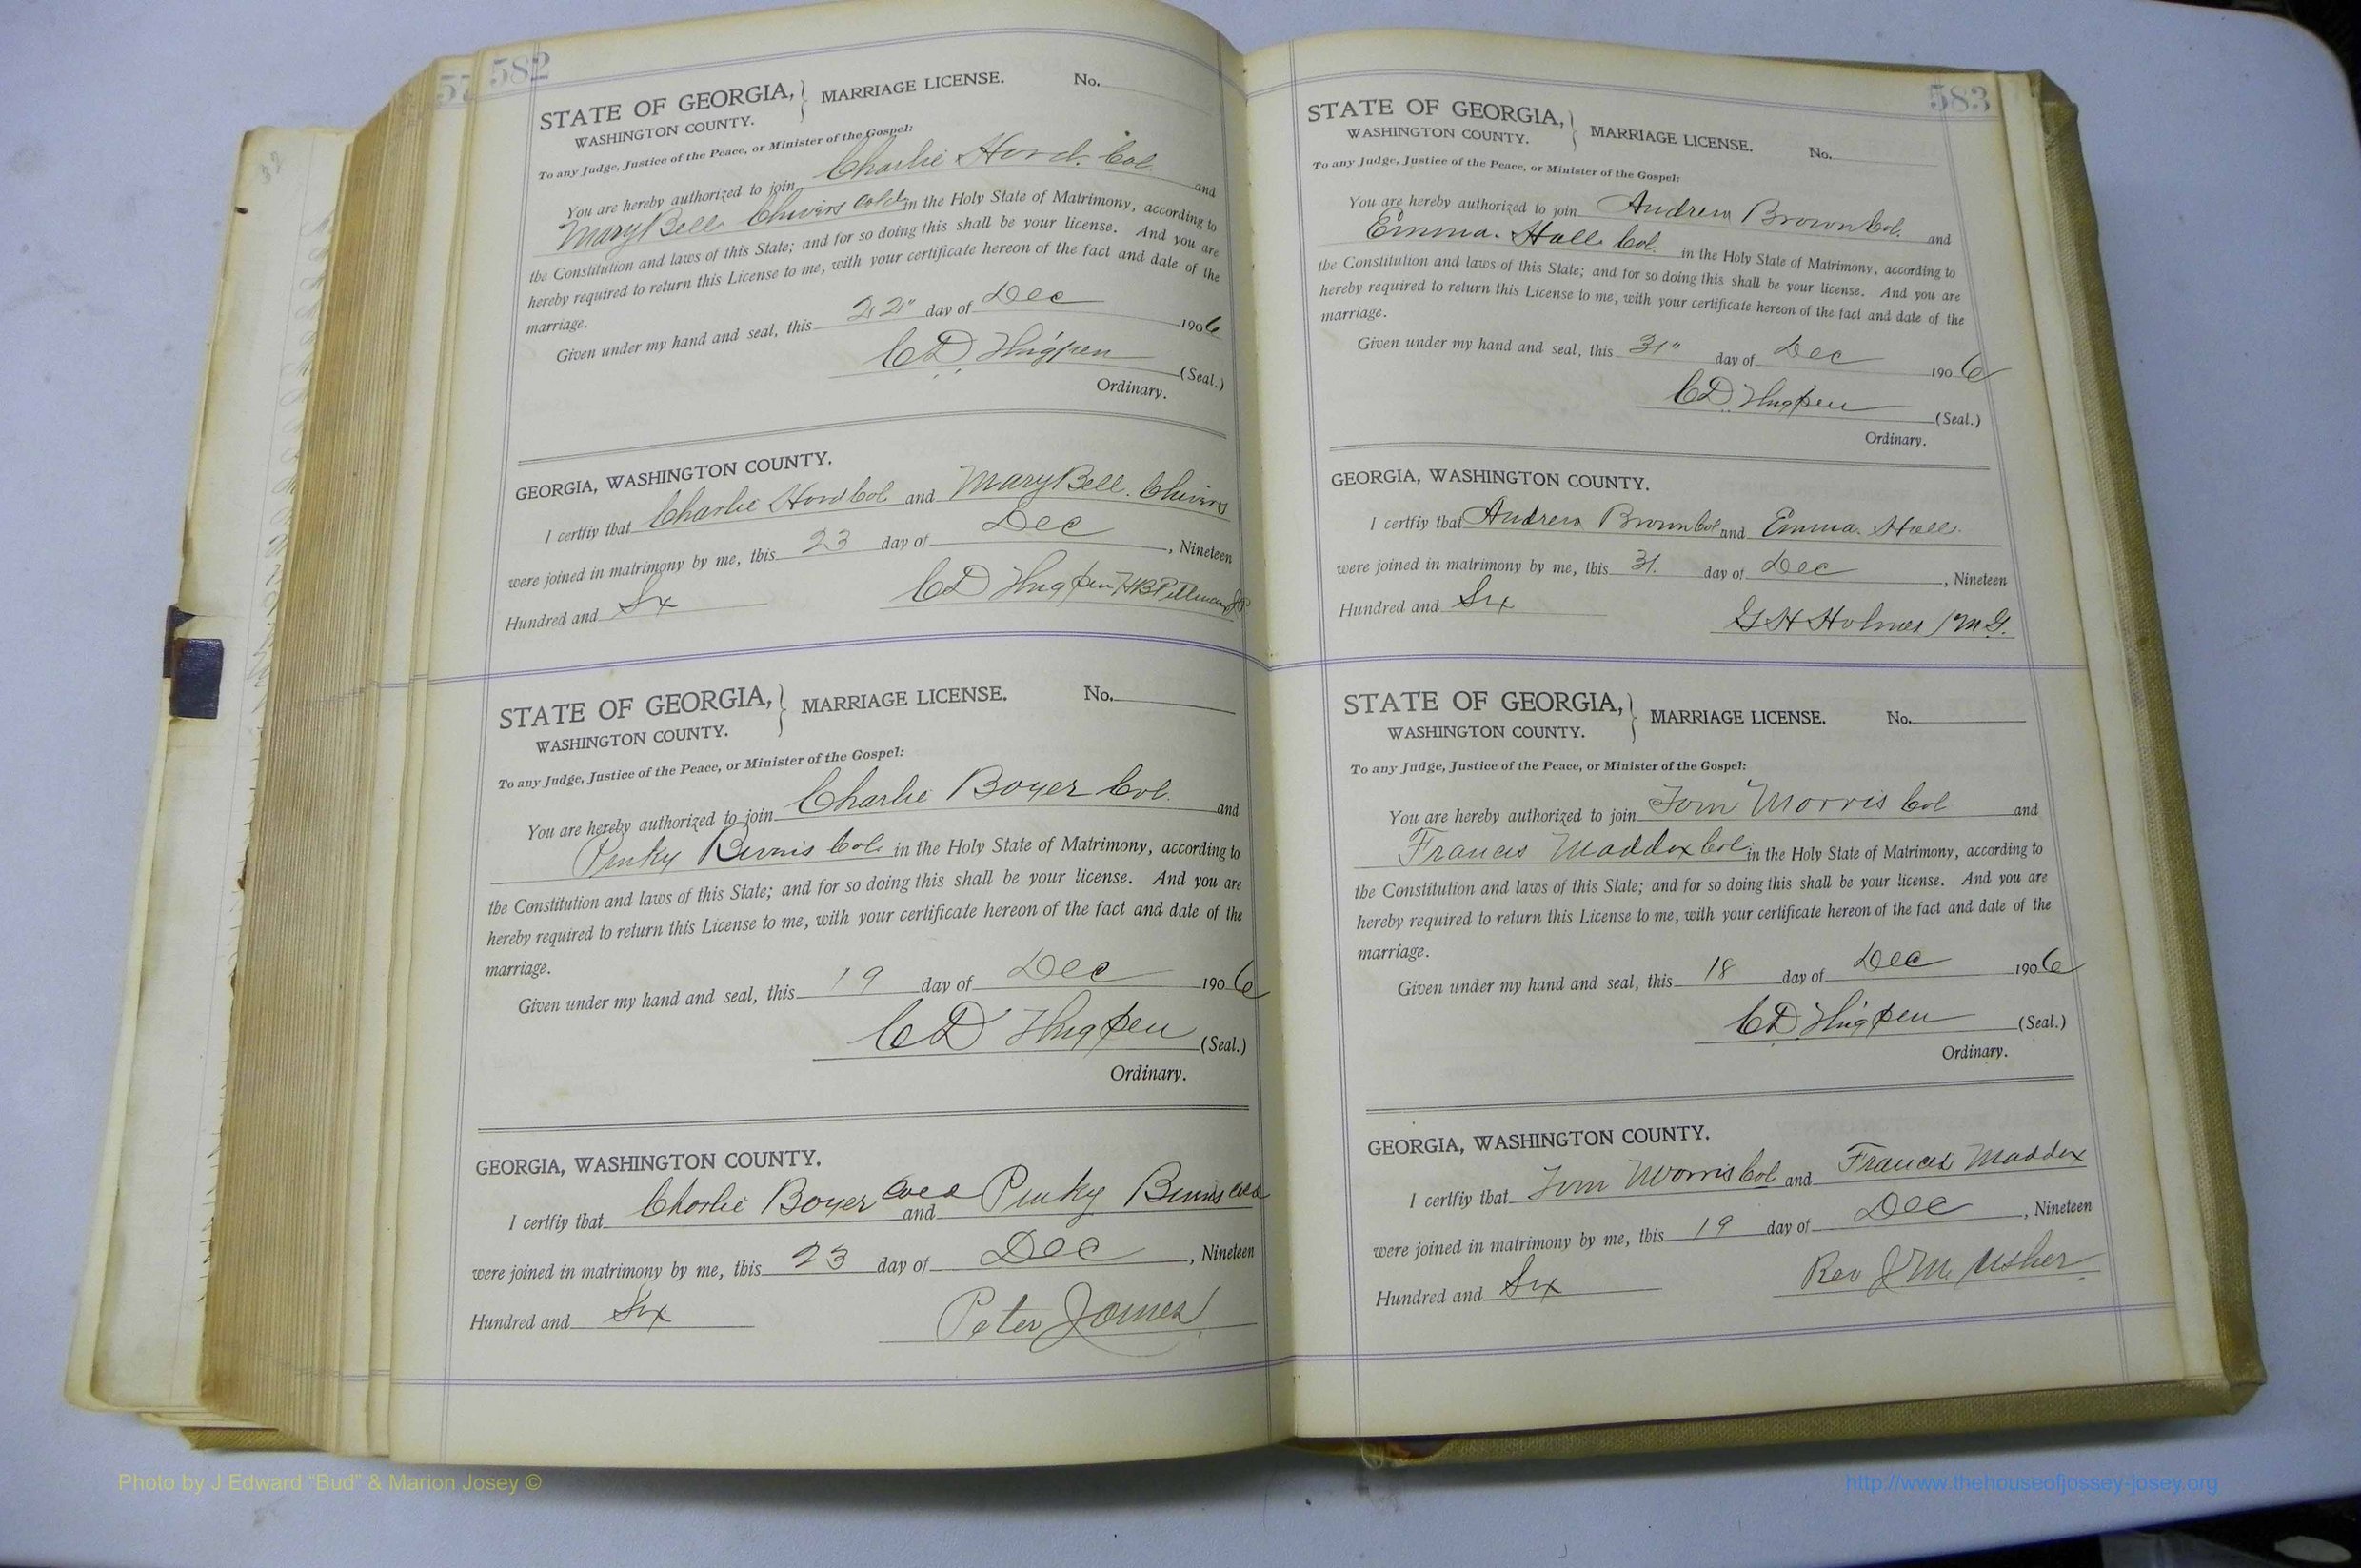 582
STATE OF GEORGIA, MARRIAGE LICENSE. No.
WASHINGTON COUNTY.
To any Judge, Justice of the Peace, or Minister of the Gospel:
You are hereby authorized to join Charlie Hord. Col. and
Mary Bell Chivers Cold in the Holy State of Matrimony, according to
the Constitution and laws of this State; and for so doing this shall be your license. And you are
hereby required to return this License to me, with your certificate hereon of the fact and date of the
marriage.
Given under my hand and seal, this 22" day of Dec 1906
CD Thigpen (Seal.)
Ordinary.
GEORGIA, WASHINGTON COUNTY.
I certfiy that Charlie Hord Col and Mary Bell. Chivers
were joined in matrimony by me, this 23 day of Dec, Nineteen
Hundred and Six CD Thigpen HB Pittman JP
STATE OF GEORGIA, MARRIAGE LICENSE. No.
WASHINGTON COUNTY.
To any Judge, Justice of the Peace, or Minister of the Gospel:
You are hereby authorized to join Charlie Boyer Col. and
Pinky Col. in the Holy State of Matrimony, according to
the Constitution and laws of this State; and for so doing this shall be your license. And you are
hereby required to return this License to me, with your certificate hereon of the fact and date of the
marriage.
Given under my hand and seal, this 19 day of Dec 1906
CD Thigpen (Seal.)
Ordinary.
GEORGIA, WASHINGTON COUNTY.
I certfiy that Charlie Boyer Cold and Pinky Cold
were joined in matrimony by me, this 23 day of Dec, Nineteen
Hundred and Six Peter James
583
STATE OF GEORGIA, MARRIAGE LICENSE. No.
WASHINGTON COUNTY.
To any Judge, Justice of the Peace, or Minister of the Gospel:
You are hereby authorized to join Andrew Brown Col. and
Emma. Hall Col. in the Holy State of Matrimony, according to
the Constitution and laws of this State; and for so doing this shall be your license. And you are
hereby required to return this License to me, with your certificate hereon of the fact and date of the
marriage.
Given under my hand and seal, this 31" day of Dec 1906
CD Thigpen (Seal.)
Ordinary.
GEORGIA, WASHINGTON COUNTY.
I certfiy that Andrew Brown Col and Emma. Hall.
were joined in matrimony by me, this 31. day of Dec, Nineteen
Hundred and Six G H Holmes M.G.
STATE OF GEORGIA, MARRIAGE LICENSE. No.
WASHINGTON COUNTY.
To any Judge, Justice of the Peace, or Minister of the Gospel:
You are hereby authorized to join Tom Morris Col and
Frances Maddox Col in the Holy State of Matrimony, according to
the Constitution and laws of this State; and for so doing this shall be your license. And you are
hereby required to return this License to me, with your certificate hereon of the fact and date of the
marriage.
Given under my hand and seal, this 18 day of Dec 1906
CD Thigpen (Seal.)
Ordinary.
GEORGIA, WASHINGTON COUNTY.
I certfiy that Tom Morris Col and Frances Maddox
were joined in matrimony by me, this 19 day of Dec, Nineteen
Hundred and Six Rev J M Usher
Photo by J Edward "Bud" & Marion Josey ©
http://www.thehouseofjossey-josey.org